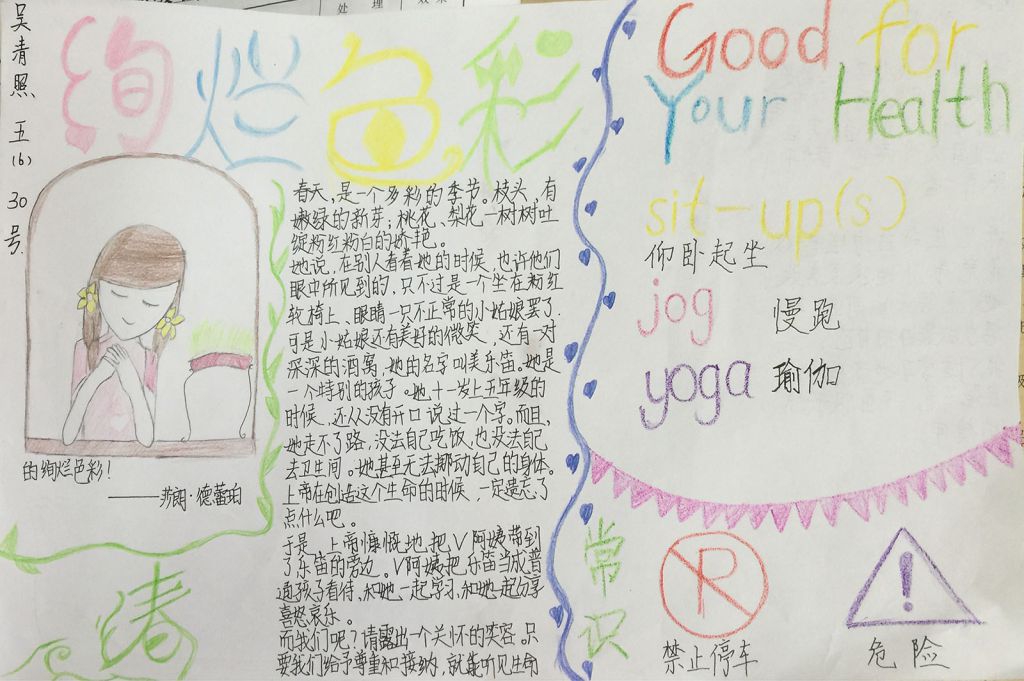 处 理
效 果
吴清照 五(6) 30号
绚烂色彩
春天,是一个多彩的季节。枝头,有
嫩绿的新芽;桃花、梨花一树树吐
绽粉红粉白的娇艳。
她说,在别人看着她的时候,也许他们
眼中所见到的,只不过是一个坐在粉红
轮椅上、眼睛一只不正常的小姑娘罢了.
可是小姑娘还有美好的微笑,还有一对
深深的酒窝,她的名字叫美乐笛。她是
一个特别的孩子。她十一岁上五年级的
时候,还从没有开口说过一个字。而且,
她走不了路,没法自己吃饭,也没法自己
去卫生间。她甚至无法挪动自己的身体。
上帝在创造这个生命的时候,一定遗忘了
点什么吧。
于是,上帝慷慨地把V阿姨带到
了乐笛的旁边。V阿姨把乐笛当成普
通孩子看待,和她一起学习,和她一起分享
喜怒哀乐。
而我们呢?请露出一个关怀的笑容。只
要我们给予尊重和接纳,就能听见生命
的绚烂色彩!
——莎朗·德蕾珀
春
Good for
Your Health
sit-up(s)
仰卧起坐
jog 慢跑
yoga 瑜伽
常识
P
禁止停车
!
危险